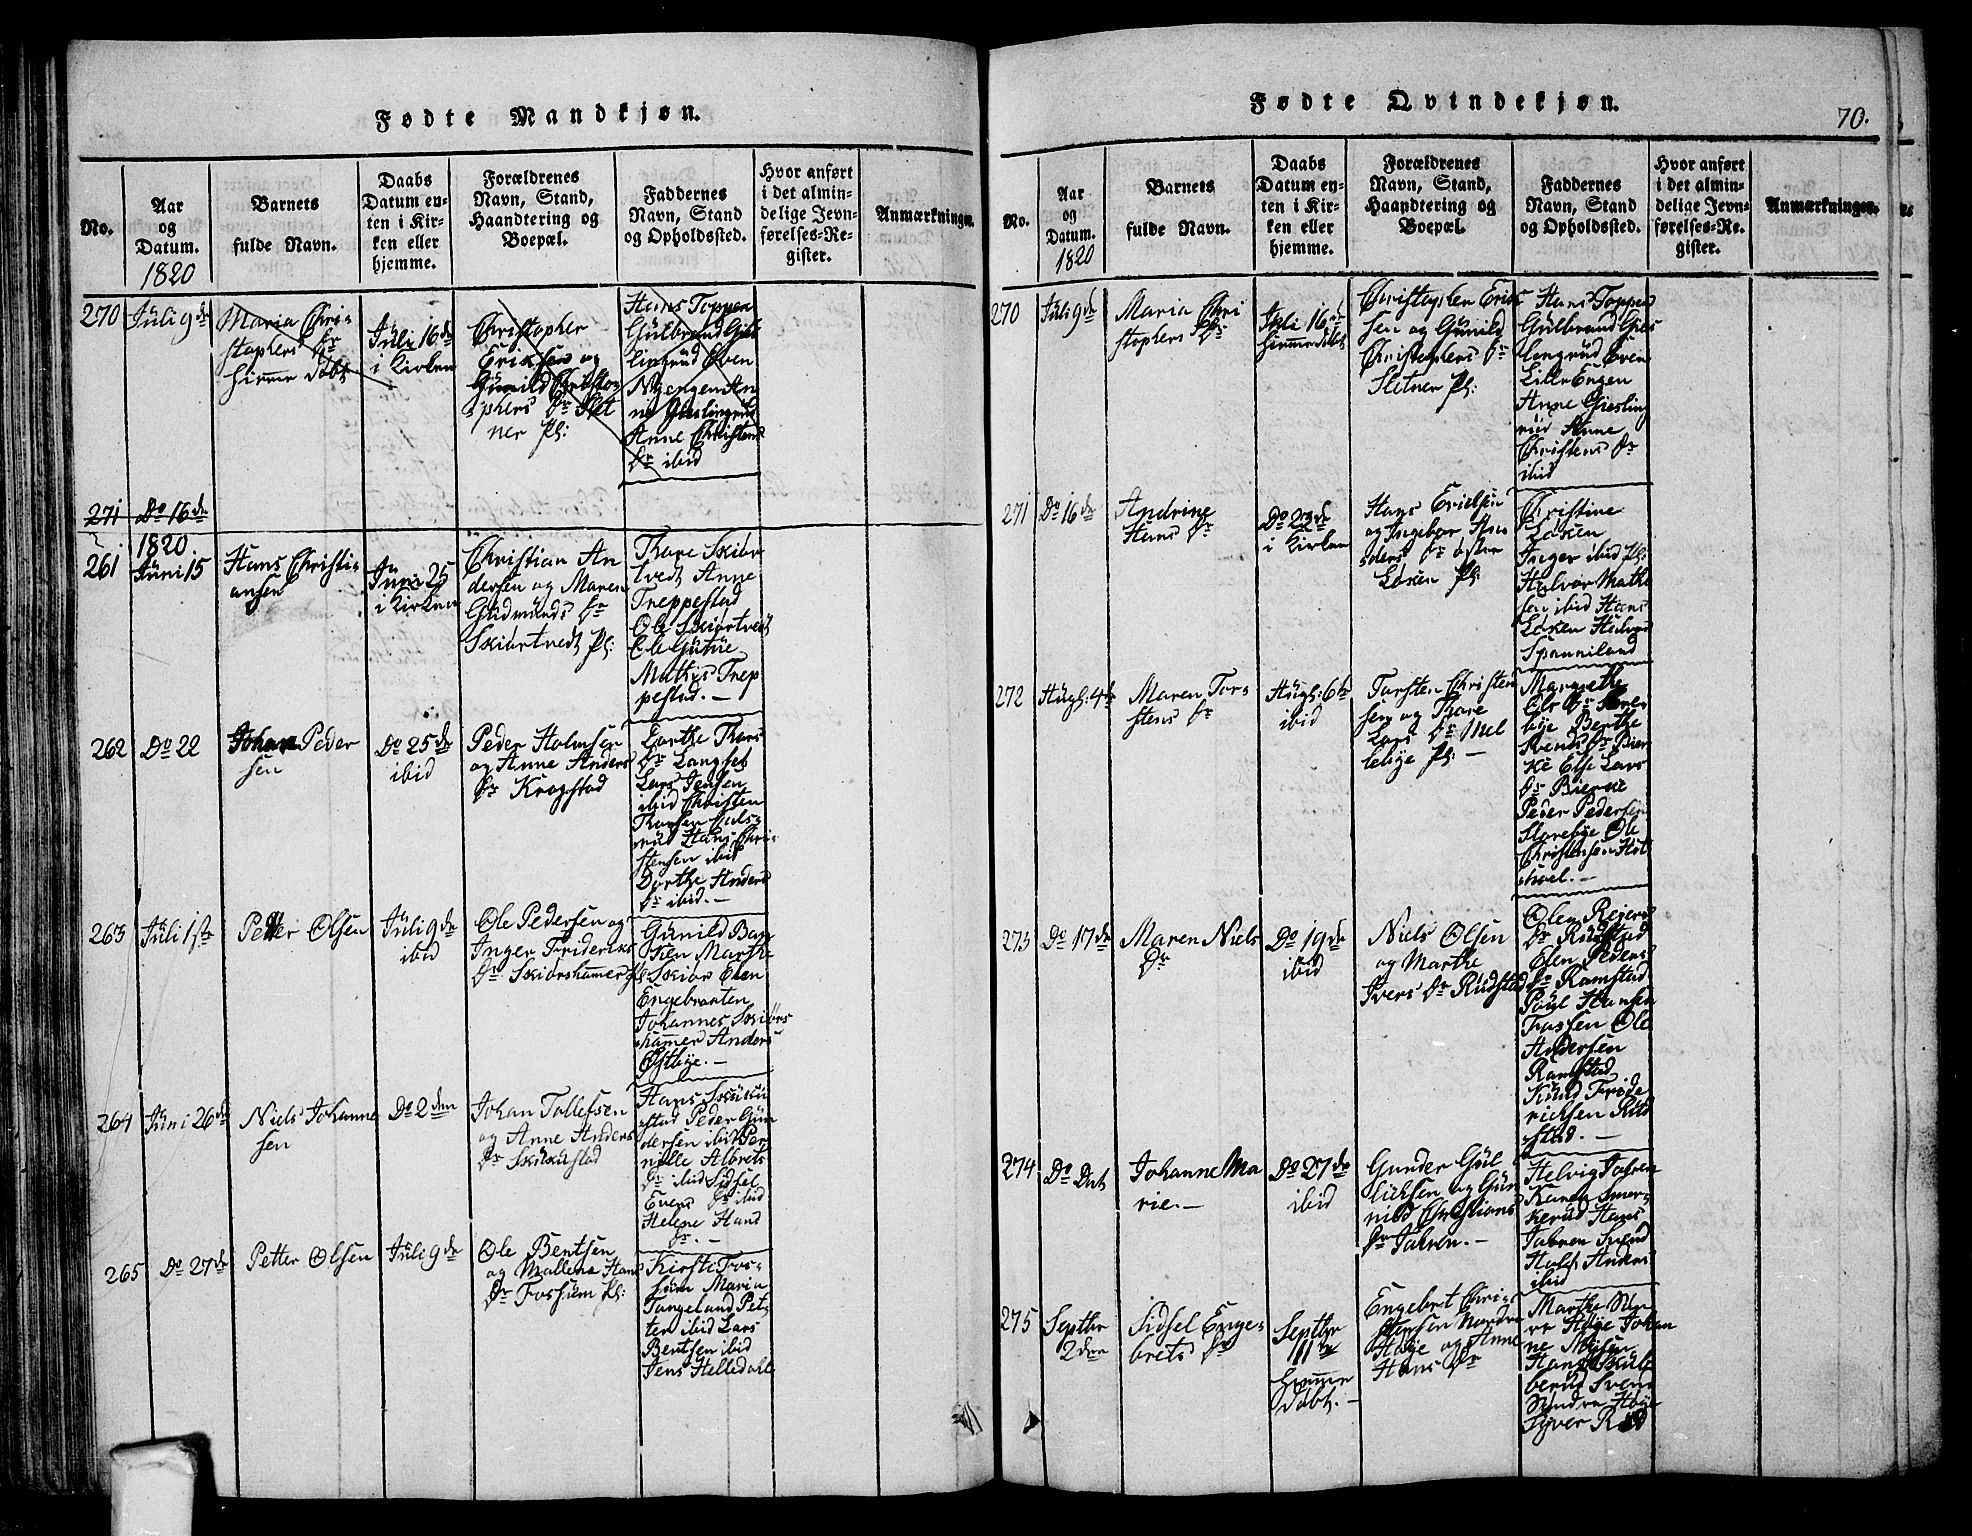 Fødte Mandkjøn.
No.
Aar
og
Datum.
1820
Barnets
fulde Navn.
Daabs
Datum en-
ten i Kir-
ken eller
hjemme.
Forældrenes
Navn, Stand,
Haandtering og
Boepæl.
Faddernes
Navn, Stand
og Opholdssted.
Hvor anført
i det almin-
delige Jevn-
førelses-Re-
gister.
Anmærkninger.
270
Juli 9de
Maria Chri-
stophers Dr
hiemme døbt
Juli 16de
i Kirken
Christopher
Eriksen og
Gunild Christo-
phers Dr Slet
ner Pl:
Hans Toppen
Gulbrand Gis
lingrud Even
Nyengen An
ne Gieslingrud
Anne Christens
Dr ibid
271
Do 16de
1820
261
Juni 15
Hans Christi-
ansen
Juni 25
i Kirken
Christian An
dersen og Maren
Gudmunds Dr
Skiørtvedt Pl:
Thore Skiør
tvedt Anne
Treppestad
Ole Skiørtvedt
Ole
Mathis Trep
pestad. -
262
Do 22
Johan Peder
sen
Do 25de
ibid
Peder Holmsen
og Anne Anders
Dr Krogstad
Dorthe Thors
Dr Langset
Lars Jensen
ibid Christen
Thorsen
rud Hans Chri-
stensen ibid
Dorthe Anders
Dr ibid. -
263
Juli 1ste
Petter Olsen
Juli 9de
ibid
Ole Pedersen og
Inger Fridericks
Dr: Skiørshammer Pl
Gunild Bak
ken Marthe
Skiør Olen
Engebraaten
Johannes Skiørs
hammer Anders
Østbye. -
264
Juni 26de
Niels Johanne
sen
Do 2den
Johan Tollefsen
og Anne Anders
Dr Skukustad
Hans Skuku
stad Peder Gun
dersen ibid Per
nille Albrets
Dr ibid Sidsel
Evens Dr ibid
Helene Hans
Dr. -
265
Do 27de
Petter Olsen
Juli 9de
Ole Bentsen
og Mallene Hans
Dr Fossum Pl:
Kirsti Fos-
sum Maria
Tangeland Pet-
ter ibid Lars
Bentsen ibid
Jens Helledahl
Fødte Qvindekjøn.
70.
No.
Aar
og
Datum.
1820
Barnets
fulde Navn.
Daabs
Datum en-
ten i Kir-
ken eller
hjemme.
Forældrenes
Navn, Stand,
Haandtering og
Boepæl.
Faddernes
Navn, Stand
og Opholdssted.
Hvor anført
i det almin-
delige Jevn-
førelses-Re-
gister.
Anmærkninger.
270
Juli 9de
Maria Chri
stophers Dr
Juli 16de
hiemme døbt
Christopher Erik
sen og Gunild
Christophers Dr
Sletner Pl:
Hans Toppen
Gulbrand Gies
lingrud Even
Lille Engen
Anne Gieslin
rud Anne
Christens Dr
ibid
271
Do 16de
Andrine
Hans Dr
Do 23de
i Kirken
Hans Erichsen
og Ingebor Han
Dr øster
Løken Pl:
Christine
Løken
Inger ibid Pl:
Halvor Mathi
sen ibid Hans
Løken
Spanniland
272
Augs: 4de
Maren Tor-
stens Dr
Augs: 6te
ibid
Torsten Christen
sen og Thore
Lars Dr Mel
lebye Pl: -
Margrethe
Ols Dr
bye Berthe
Svends Dr Bier
ke Else Lars
Dr Bierke
Peder Pedersen
Slorebye Ole
Christensen Hot
hoel. -
273
Do 17de
Maren Niels
Dr
Do 19de
ibid
Niels Olsen
og Marthe
Ivers Dr Rudstad
Olen Reiers
Dr Rudstad
Olen Peders
Dr Ramstad
Poul Hansen
Fossen Ole
Andersen
Ramstad
Knud Fride
richsen Rud
stad. -
274
Do Dat
Johanne Ma
rie. -
Do 27de
ibid
Gunder Gul
lichsen og Gun
nild Christians
Dr Jahren. -
Helvig Jahren
Karen Smer-
kerud Hans
Jahren Svend
Anders
ibid
275
Septbr
2den
Sidsel Enge-
brets Dr
Septbr
hiemme
døbt. -
Engebret Chri-
stensen Nordre
Høye og Anne
Hans Dr
Marthe
Høye Johan
ne Moisen
Hans Skul
berud Svend
Søndre Høye
Syver Rud